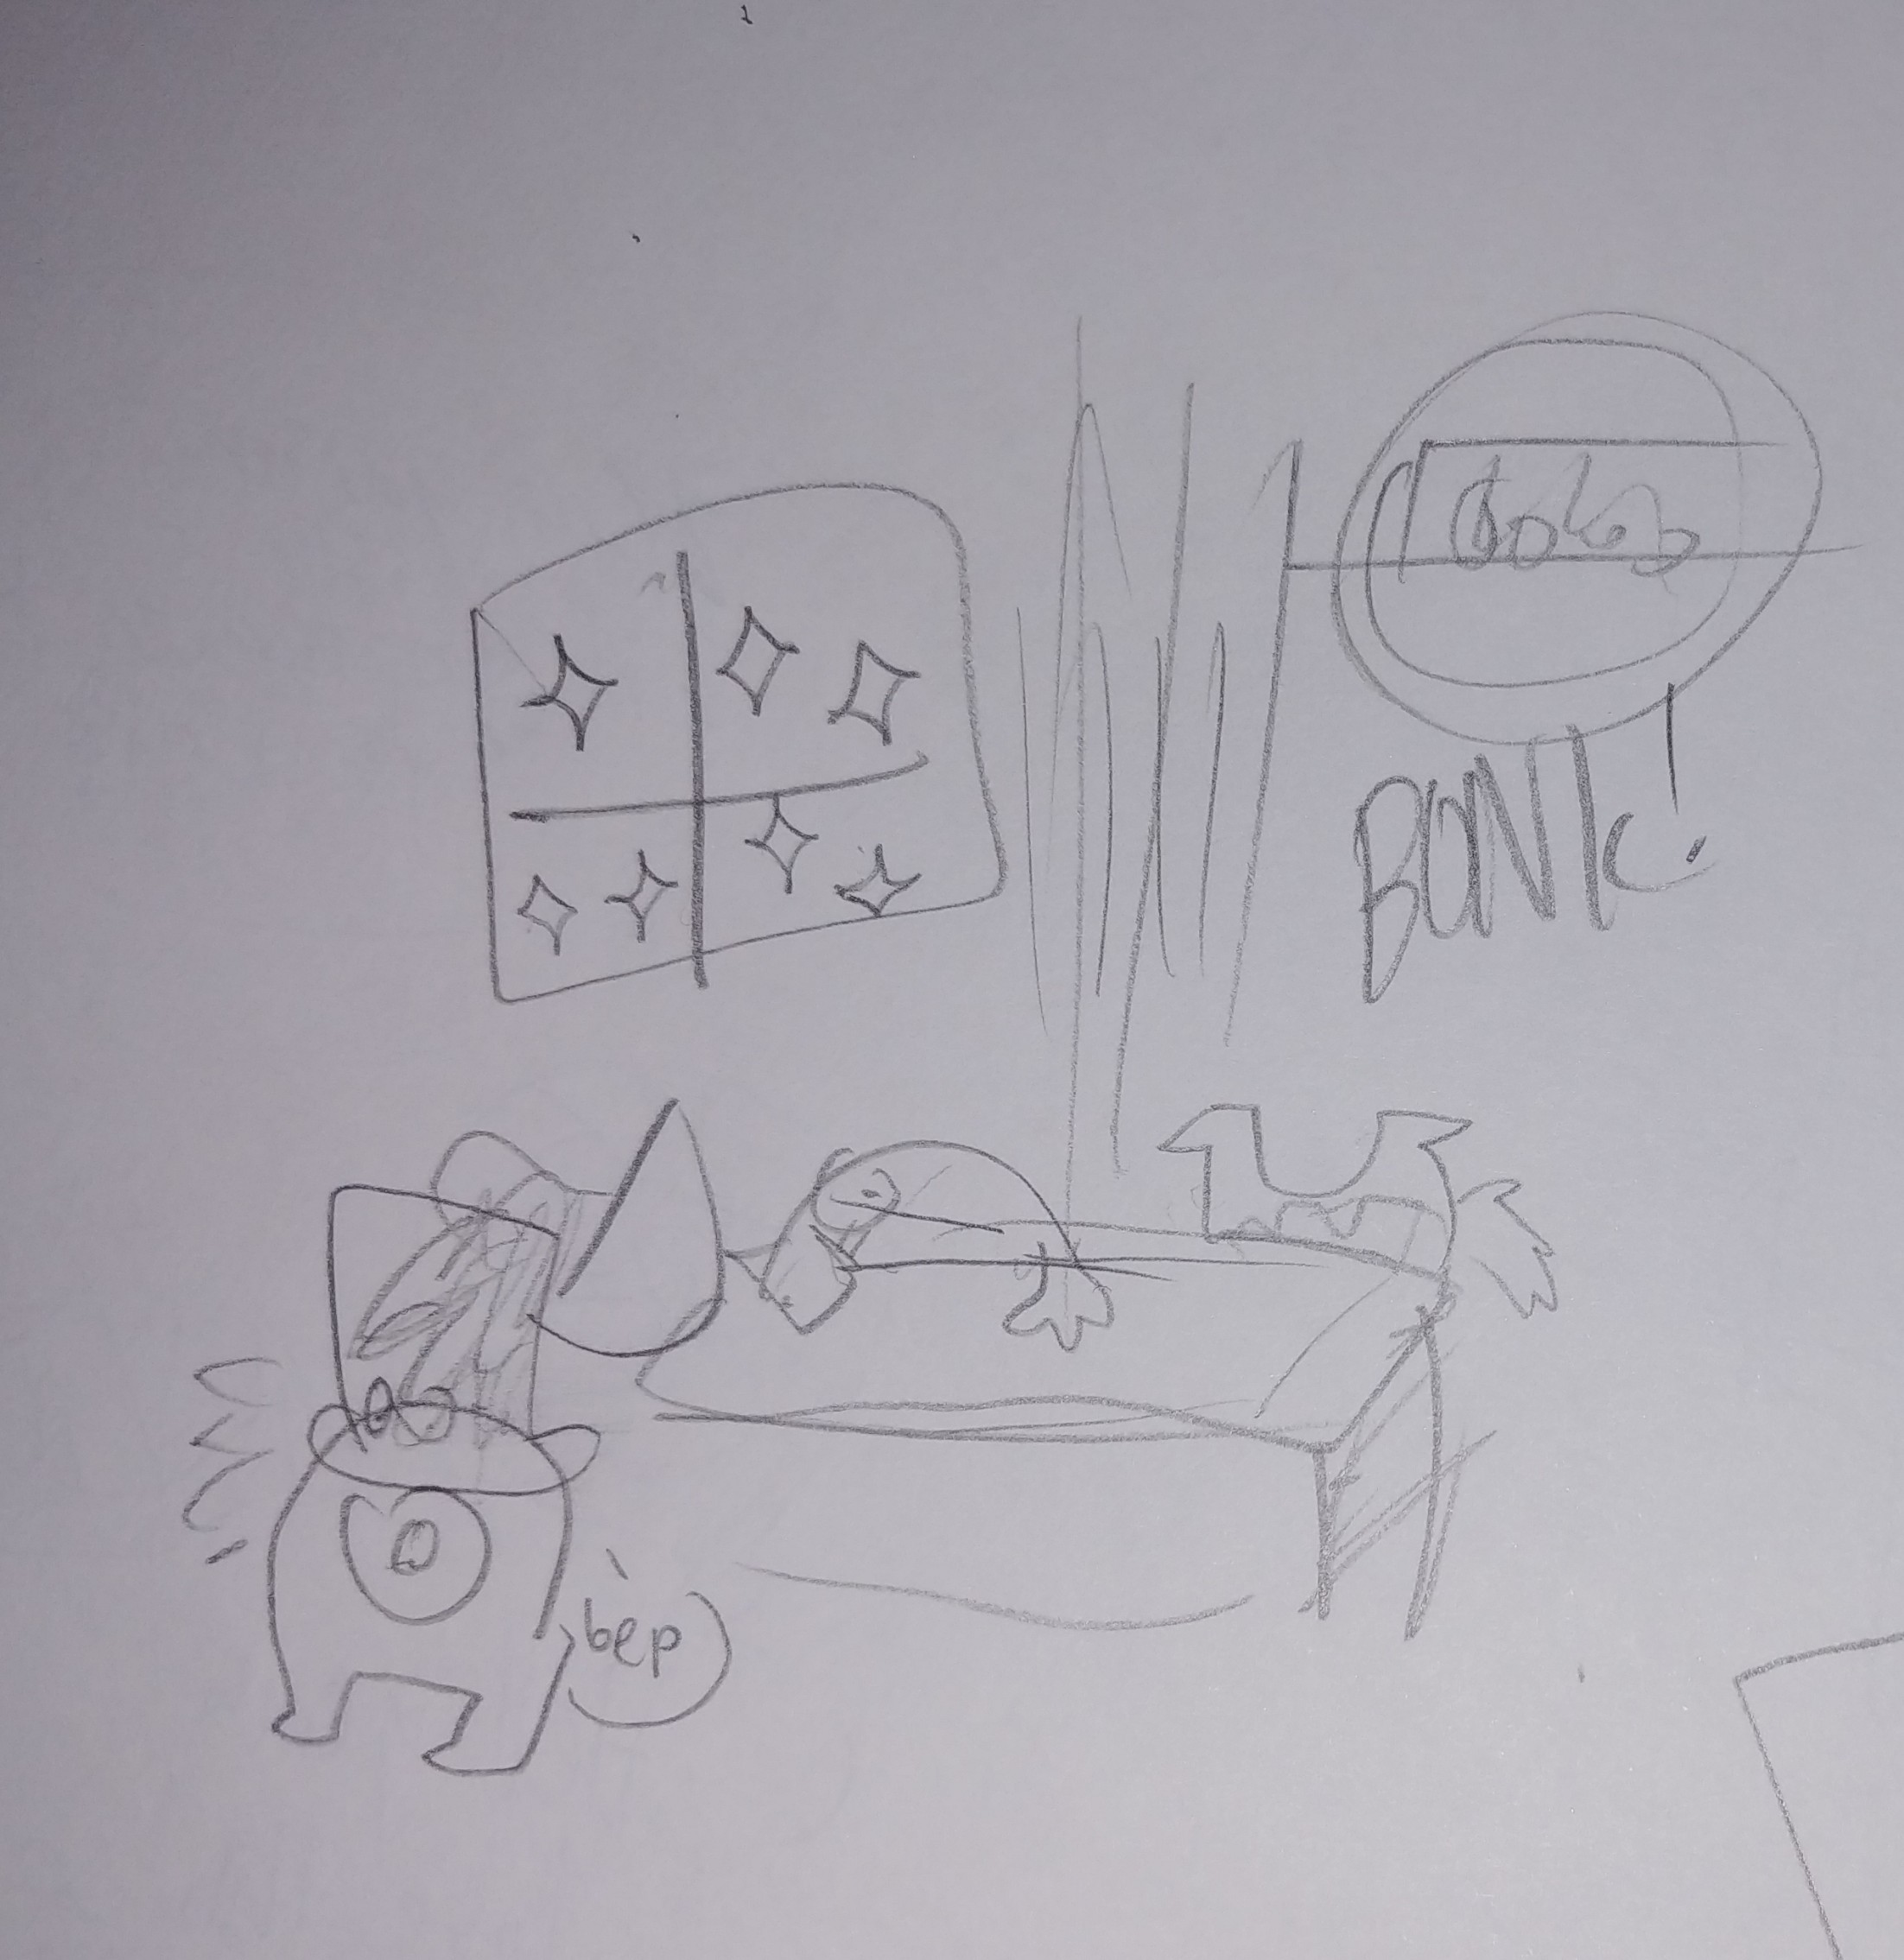 BONK!
bèp